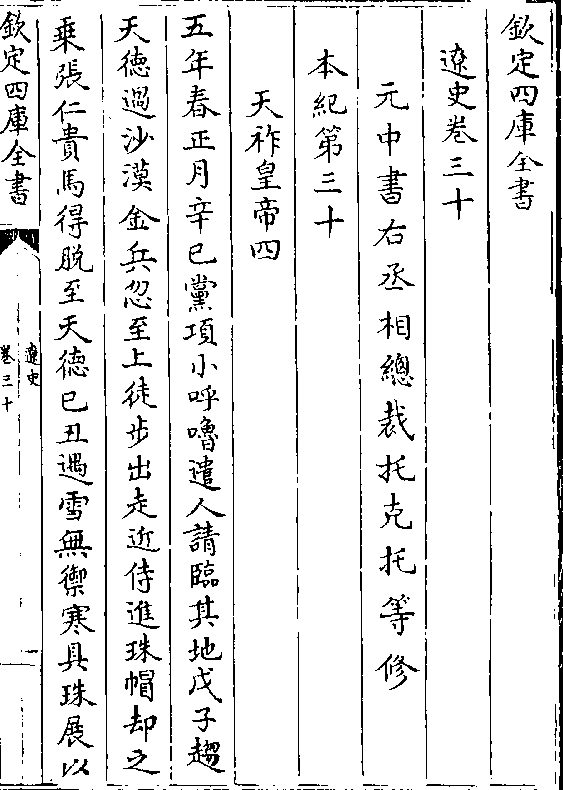 欽定四庫全書
遼史卷三十
元中書右丞相總裁托克托等修
本紀第三十
天祚皇帝四
五年春正月辛巳黨項小呼嚕遣人請臨其地戊子趨
天德過沙漠金兵忽至上徒步出走近侍進珠帽却之
乗張仁貴馬得脱至天德己丑遇雪無禦寒具珠展以
欽定四庫全書
遼史
卷三十